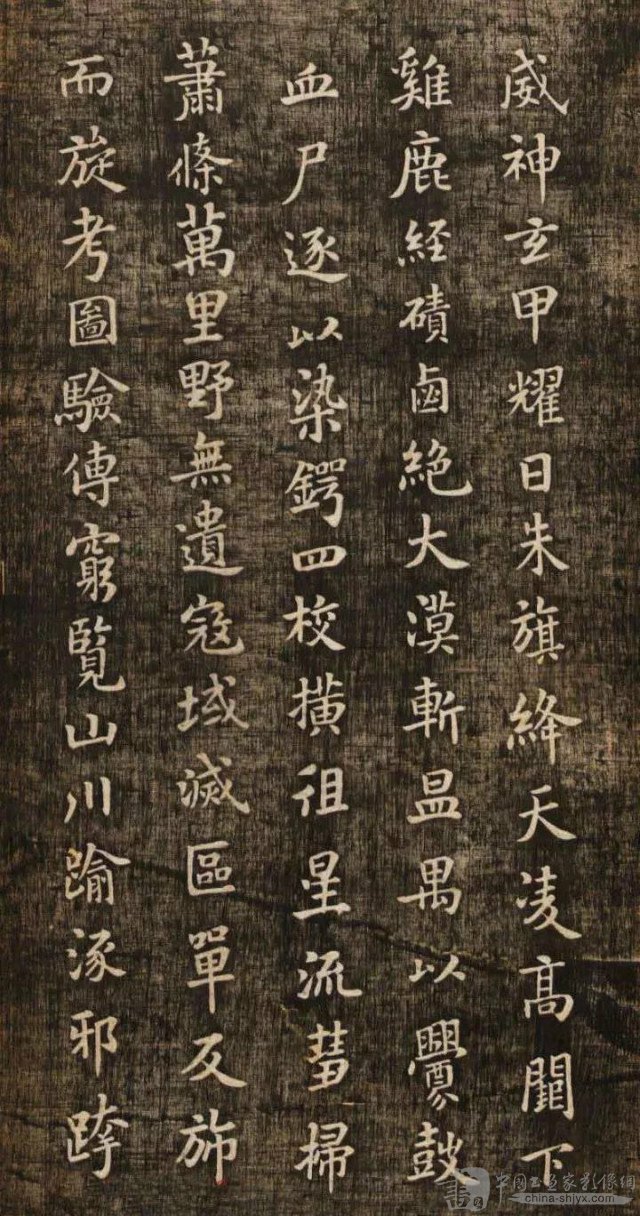 威神玄甲耀日朱旗絳天凌高闕下
雞鹿経磧鹵絶大漠斬昷禺以釁鼓
血尸逐以染鍔四校撗徂星流彗掃
蕭條萬里野無遺寇域滅區單反旆
而旋考圖驗傳窮覽山川踰涿邪跨
中國书画家影像網
china-shjyx.com